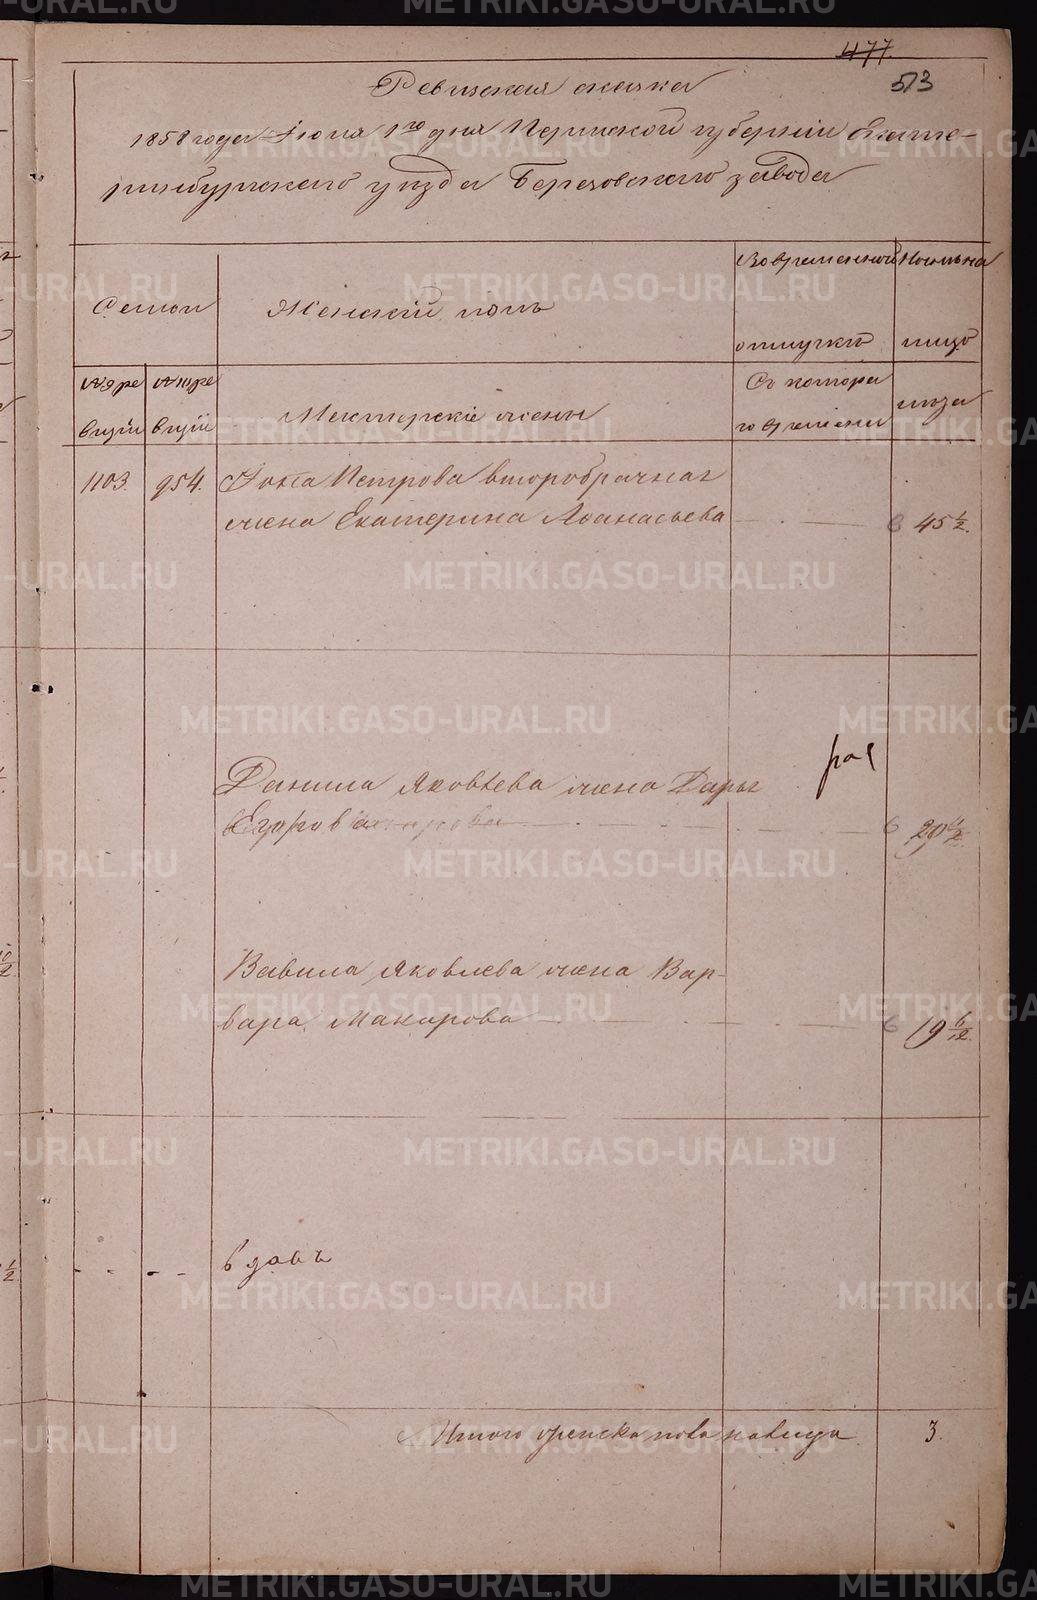 477.
513
Ревизская сказка
1858 года Июня 1го дня Пермской губернии Екате-
ринбургскаго уезда Березовскаго завода
Семьи
Женский полъ
Во временной
отлучкѣ
На лицо
визіи
визіи
Мастерскіе жены
Съ котора
го времени
лѣта
1103. 954. Іона Петрова второбрачная
жена Екатерина Афанасьева 45 1/2.
Данила Яковлева жена Дарья
Егорова
Вавила Яковлева жена Вар-
вара Макарова 19 6/12.
вдовъ
Итого женска пола на лицо 3.
METRIKI.GASO-URAL.RU